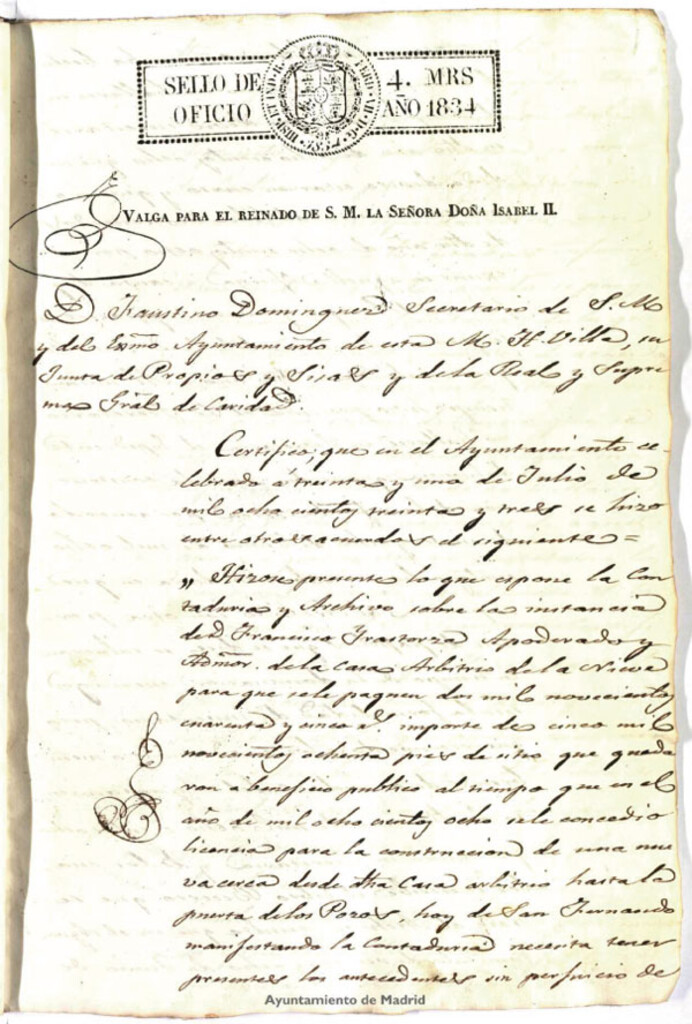 SELLO DE 4. MRS
OFICIO AÑO 1834
VALGA PARA EL REINADO DE S. M. LA SEÑORA DOÑA ISABEL II.
D. Faustino Dominguez Secretario de S. M.
y del Exmo Ayuntamiento de esta M. H. Villa, su
Junta de Propios y Sisas y de la Real y Supre
ma Gral de Caridad.
Certifico, que en el Ayuntamiento ce-
lebrado á treinta y uno de Julio de
mil ocho cientos treinta y tres se hizo
entre otros acuerdos el siguiente =
„ Hizose presente lo que espone la Con
taduria y Archivo sobre la instancia
de D. Francisco Apoderado y
Admor. de la Casa Arbitrio de la Nieve
para que se le paguen dos mil novecientos
cuarenta y cinco rs. importe de cinco mil
novecientos ochenta pies de sitio que queda
ron á beneficio publico al tiempo que en el
año de mil ocho cientos ocho se le concedio
licencia para la construccion de una nue
va cerca desde dha Casa arbitrio hasta la
puerta de los Pozos, hoy de San Fernando
manifestando la Contaduria necesita tener
presentes los antecedentes sin perjuicio de
Ayuntamiento de Madrid